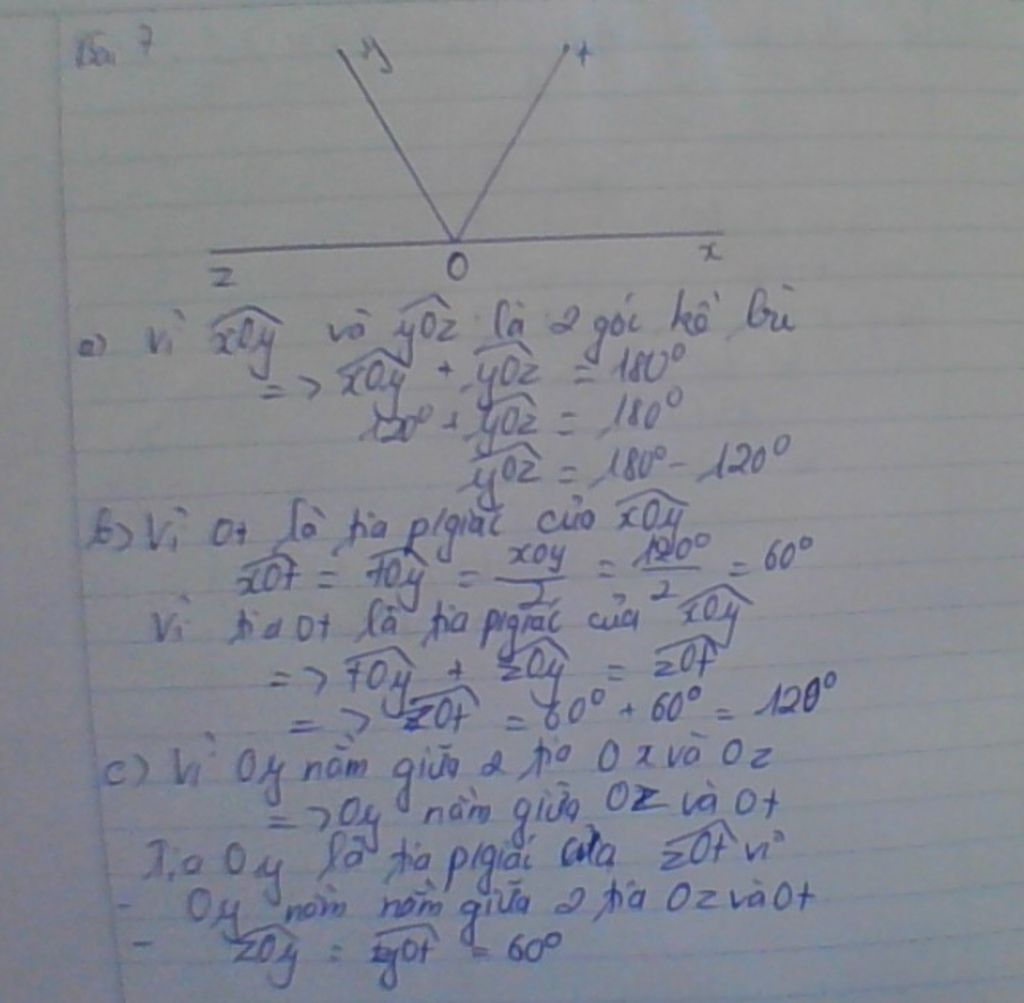 Bài 7
y t
z O x
a) Vì xOy và yOz là 2 góc kề bù
=> xOy + yOz = 180°
120° + yOz = 180°
yOz = 180° - 120°
b) Vì Ot là tia p/giác của xOy
xOt = tOy = xOy/2 = 120°/2 = 60°
Vì tia Ot là tia p/giác của xOy
=> tOy + zOy = zOt
=> zOt = 60° + 60° = 120°
c) Vì Oy nằm giữa 2 tia Ox và Oz
=> Oy nằm giữa Oz và Ot
Tia Oy là tia p/giác của zOt vì
- Oy nằm nằm giữa 2 tia Oz và Ot
- zOy = yOt = 60°